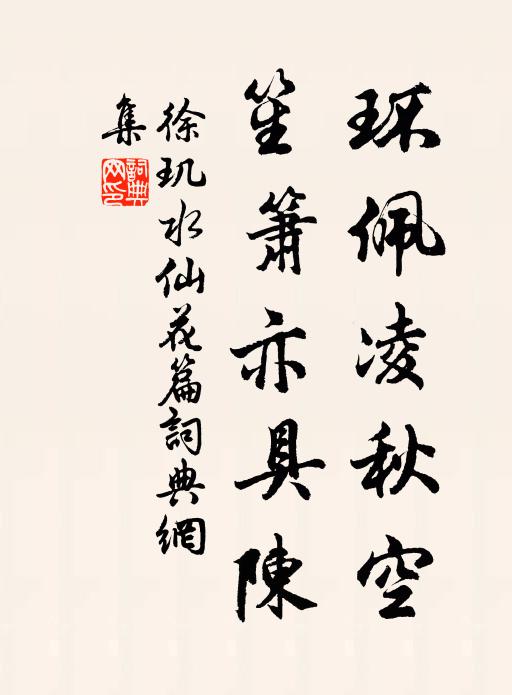 环佩凌秋空
笙箫亦具陳
徐玑水仙花篇詞典網
集
詞典網印